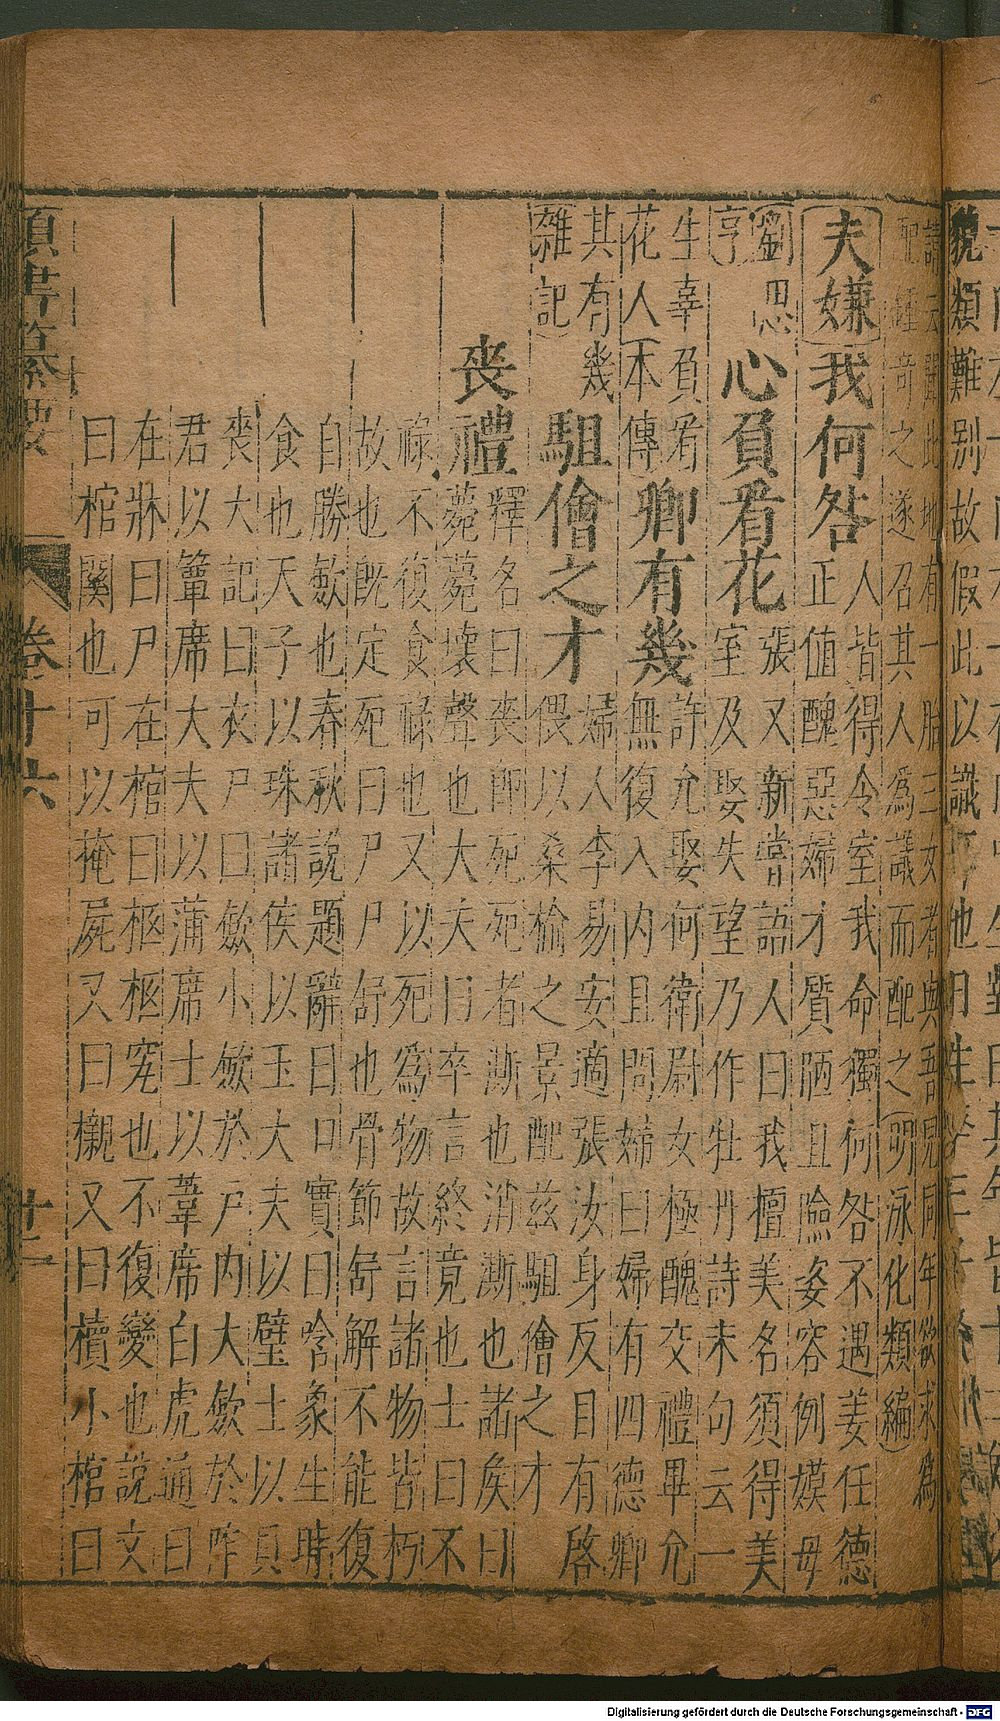 詩云聞此地有一胎三女者與吾兄同年欲求為
配鍾奇之遂召其人為議而配之(明泳化類編)
夫嫌我何咎
人皆得令室我命獨何咎不遇姜任德
正值醜惡婦才質陋且險姿容例嫫母
劉思
亨
心負看花
張又新嘗語人曰我擅美名須得美
室及娶失望乃作牡丹詩末句云一
生辜負看
花人(本傳
卿有幾
許允娶何衛尉女極醜交禮畢允
無復入内且問婦曰婦有四德卿
其有幾
雜記)
駔儈之才
婦人李易安適張汝身反目有啓
偎以桑榆之景配兹駔儈之才
喪禮
釋名曰喪即死死者澌也消澌也諸侯曰
薨薨壊聲也大夫曰卒言終竟也士曰不
祿不復食祿也又以死為物故言諸物皆朽
故也既定死曰尸尸舒也骨節舒解不能復
自勝斂也春秋說題辭曰口實曰唅象生時
食也天子以珠諸侯以玉大夫以璧士以貝
喪大記曰衣尸曰斂小斂於戶内大斂於阼
君以簟席大夫以蒲席士以葦席白虎通曰
在牀曰尸在棺曰柩柩究也不復變也說文
曰棺關也可以掩屍又曰櫬又曰櫝小棺曰
類書纂要
卷十六
十二
貌類難别故假此以識
Digitalisierung gefördert durch die Deutsche Forschungsgemeinschaft - DFG